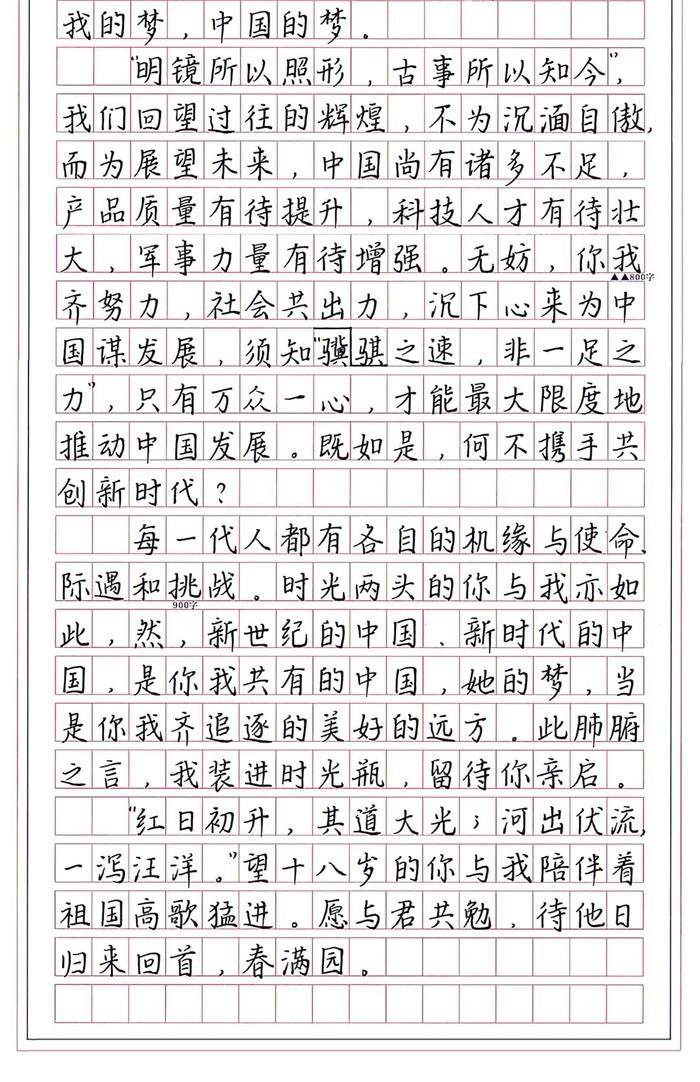 我的梦，中国的梦。
“明镜所以照形，古事所以知今”，
我们回望过往的辉煌，不为沉湎自傲，
而为展望未来，中国尚有诸多不足，
产品质量有待提升，科技人才有待壮
大，军事力量有待增强。无妨，你我
▲▲800字
齐努力，社会共出力，沉下心来为中
国谋发展，须知“骥骐之速，非一足之
力”，只有万众一心，才能最大限度地
推动中国发展。既如是，何不携手共
创新时代？
每一代人都有各自的机缘与使命、
际遇和挑战。时光两头的你与我亦如
900字
此，然，新世纪的中国、新时代的中
国，是你我共有的中国，她的梦，当
是你我齐追逐的美好的远方。此肺腑
之言，我装进时光瓶，留待你亲启。
“红日初升，其道大光；河出伏流，
一泻汪洋。”望十八岁的你与我陪伴着
祖国高歌猛进。愿与君共勉，待他日
归来回首，春满园。